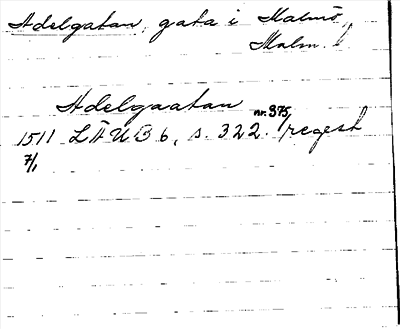 Adelgatan, gata i Malmö,
Malm.
Adelgaatan
1511 LÄUB 6, s. 322. nr. 375, regest
7/1